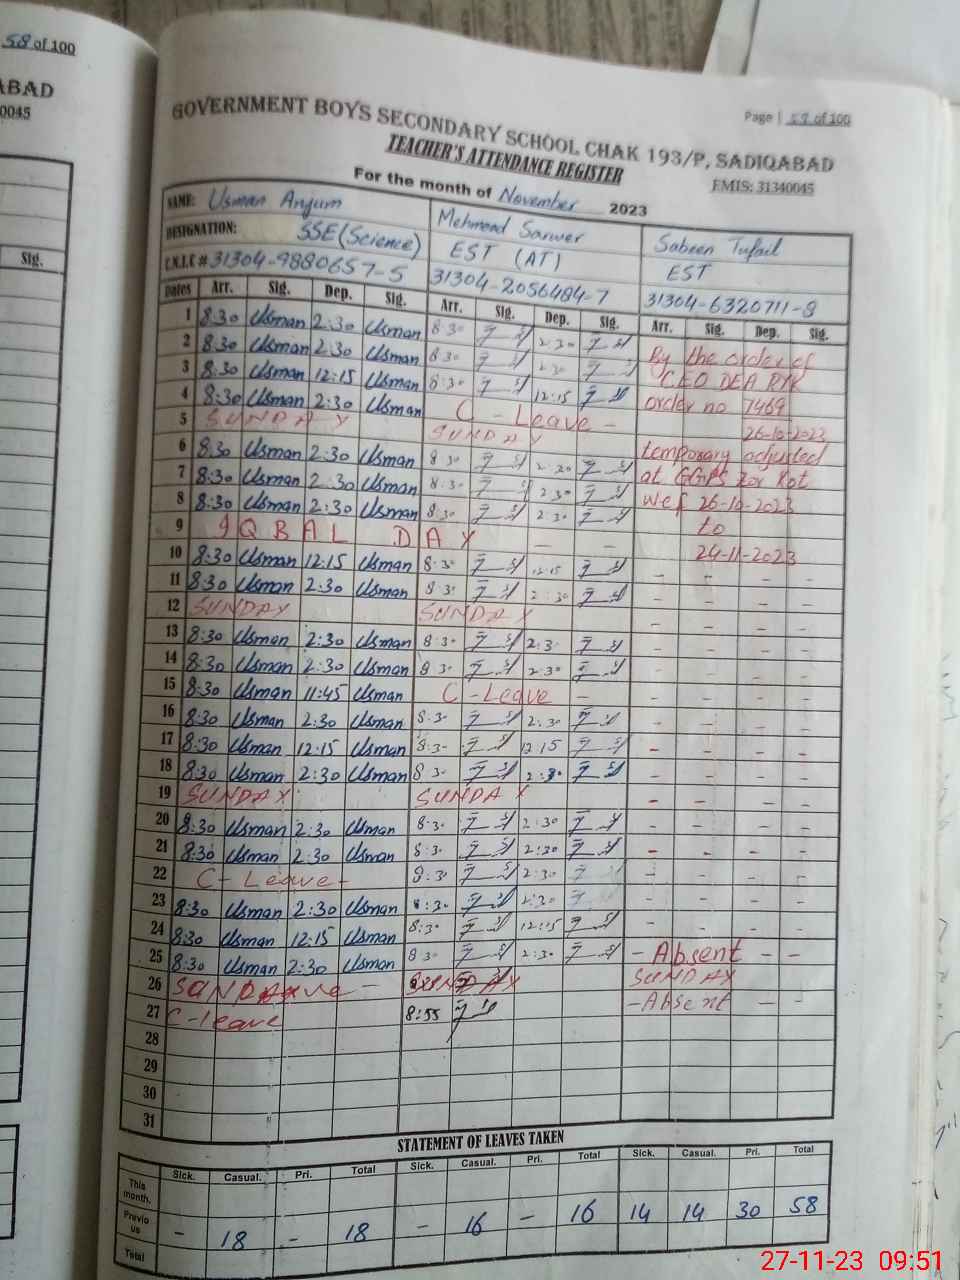 58 of 100
ABAD
0045
Sig.
Page | 59 of 100
GOVERNMENT BOYS SECONDARY SCHOOL CHAK 193/P, SADIQABAD
TEACHER'S ATTENDANCE REGISTER
EMIS: 31340045
For the month of November 2023
NAME: Usman Anjum Mehmood Sarwer Sabeen Tufail
DESIGNATION: SSE (Science) EST (AT) EST
C.N.I.C # 31304-9880657-5 31304-2056484-7 31304-6320711-8
Dates Arr. Sig. Dep. Sig. Arr. Sig. Dep. Sig. Arr. Sig. Dep. Sig.
1 8:30 Usman 2:30 Usman 8:30 2:30 By the order of
2 8:30 Usman 2:30 Usman 8:30 2:30 CEO DEA RYK
3 8:30 Usman 12:15 Usman 8:30 12:15 order no 7469
4 8:30 Usman 2:30 Usman C - Leave - 26-10-2023
5 SUNDAY SUNDAY temporary adjusted
6 8:30 Usman 2:30 Usman 8:30 2:30 at GGPS Kot
7 8:30 Usman 2:30 Usman 8:30 2:30 wef 26-10-2023
8 8:30 Usman 2:30 Usman 8:30 2:30 to
9 IQBAL DAY - - 24-11-2023
10 8:30 Usman 12:15 Usman 8:30 12:15 - - - -
11 8:30 Usman 2:30 Usman 8:30 2:30 - - - -
12 SUNDAY SUNDAY - - - -
13 8:30 Usman 2:30 Usman 8:30 2:30 - - - -
14 8:30 Usman 2:30 Usman 8:30 2:30 - - - -
15 8:30 Usman 11:45 Usman C - Leave - - - - -
16 8:30 Usman 2:30 Usman 8:30 2:30 - - - -
17 8:30 Usman 12:15 Usman 8:30 12:15 - - - -
18 8:30 Usman 2:30 Usman 8:30 2:30 - - - -
19 SUNDAY SUNDAY - - - -
20 8:30 Usman 2:30 Usman 8:30 2:30 - - - -
21 8:30 Usman 2:30 Usman 8:30 2:30 - - - -
22 C - Leave - 8:30 2:30 - - - -
23 8:30 Usman 2:30 Usman 8:30 2:30 - - - -
24 8:30 Usman 12:15 Usman 8:30 12:15 - - - -
25 8:30 Usman 2:30 Usman 8:30 2:30 - Absent - -
26 SUNDAY SUNDAY
27 C-leave 8:55 - Absent - -
28
29
30
31
STATEMENT OF LEAVES TAKEN
Sick. Casual. Pri. Total Sick. Casual. Pri. Total Sick. Casual. Pri. Total
This month.
Previo us - 18 - 18 - 16 - 16 14 14 30 58
Total
27-11-23 09:51